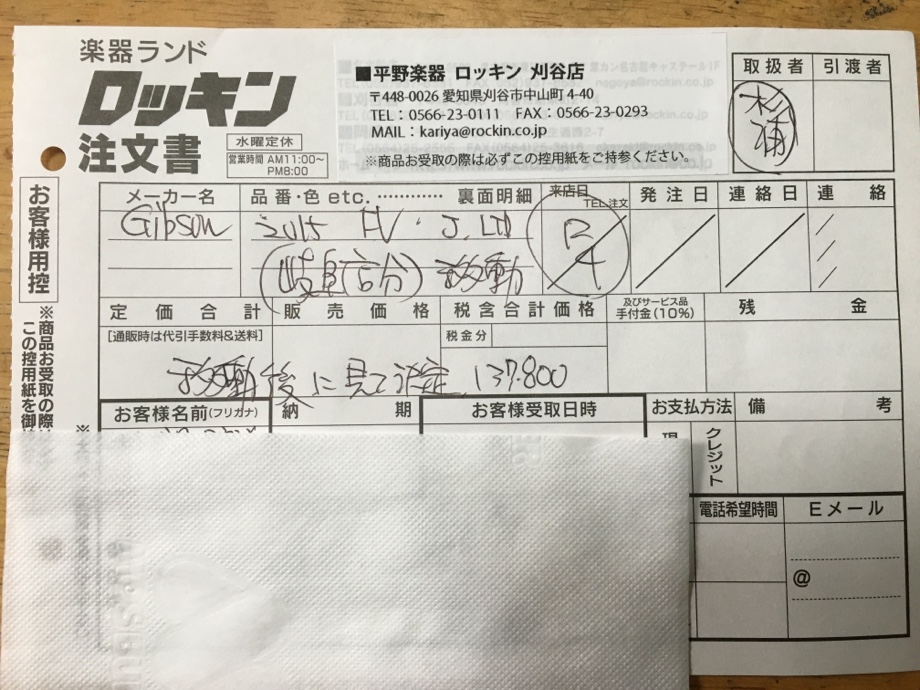 楽器ランド
ロッキン
注文書
水曜定休
営業時間 AM11:00~
PM8:00
■平野楽器 ロッキン 刈谷店
〒448-0026 愛知県刈谷市中山町 4-40
TEL：0566-23-0111 FAX：0566-23-0293
MAIL：kariya@rockin.co.jp
※商品お受取の際は必ずこの控用紙をご持参ください。
取扱者 引渡者
杉浦
お客様用控
※商品お受取の際は
この控用紙を御
メーカー名 品番・色 etc.………… 裏面明細 来店日 TEL注文 発注日 連絡日 連絡
Gibson 2015 FV・J. LTD
(岐阜店分) 移動
定価合計 販売価格 税含合計価格 及びサービス品 手付金(10%) 残金
[通販時は代引手数料&送料] 税金分
移動後に見て決定 137.800
お客様名前(フリガナ) 納期 お客様受取日時 お支払方法 備考
クレジット
電話希望時間 Eメール
@